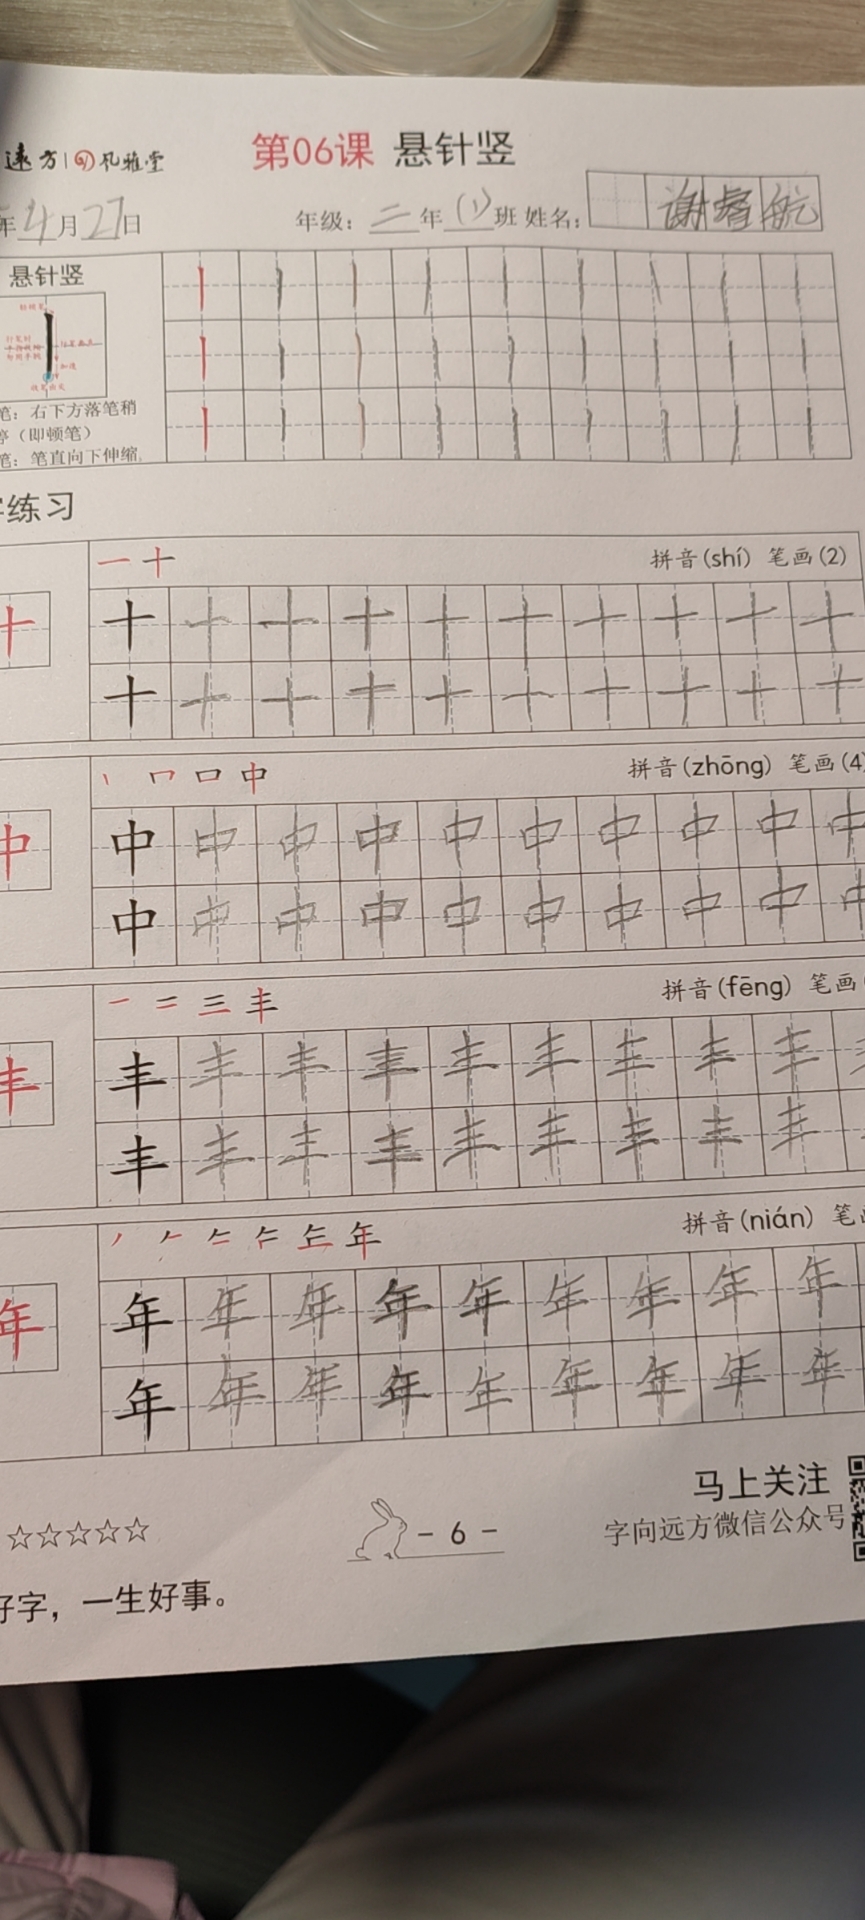 遠方 凡雅堂
第06课 悬针竖
年4月27日 年级：二年(1)班 姓名：谢睿航
悬针竖
笔：右下方落笔稍
亭（即顿笔）
笔：笔直向下伸缩
字练习
一 十 拼音(shí) 笔画(2)
十 十 十 十 十 十 十 十 十 十 十
十 十 十 十 十 十 十 十 十 十
丨 口 中 拼音(zhōng) 笔画(4)
中 中 中 中 中 中 中 中 中 中 中
中 中 中 中 中 中 中 中 中 中
一 二 三 丰 拼音(fēng) 笔画(
丰 丰 丰 丰 丰 丰 丰 丰 丰 丰
丰 丰 丰 丰 丰 丰 丰 丰 丰
年 拼音(nián) 笔画
年 年 年 年 年 年 年 年 年 年
年 年 年 年 年 年 年 年 年
☆☆☆☆☆ - 6 - 马上关注
字向远方微信公众号
好字，一生好事。